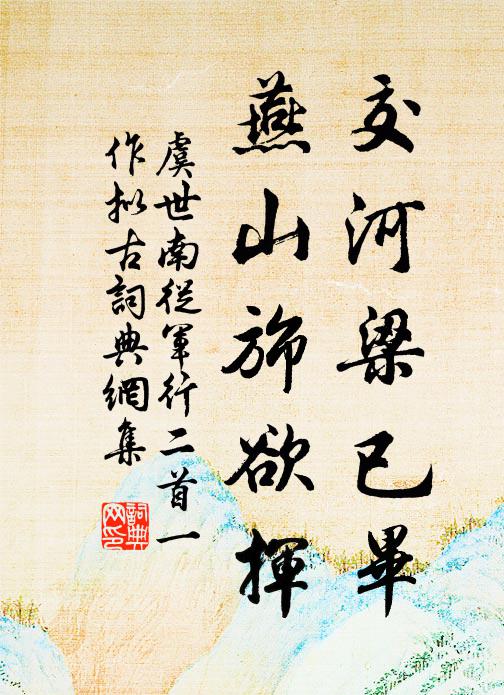 交河梁已畢
燕山旆欲揮
虞世南從軍行二首一
作拟古詞典網集
詞典
网印